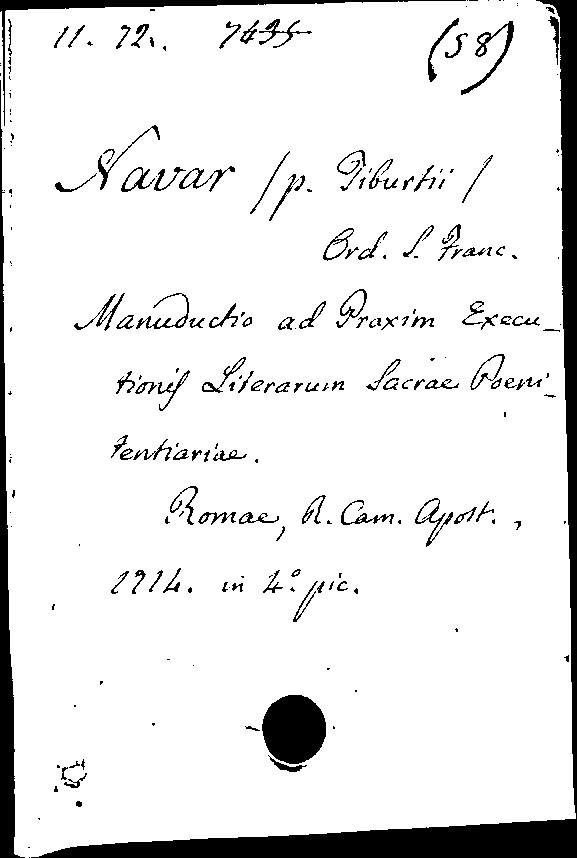 11. 72. 7435 (58)
Navar / p. Tiburtii /
Ord. S. Franc.
Manuductio ad Praxim Execu_
tionis Literarum Sacrae Poeni_
tentiariae.
Romae, R. Cam. Apost.,
1714. in 4.º pic.